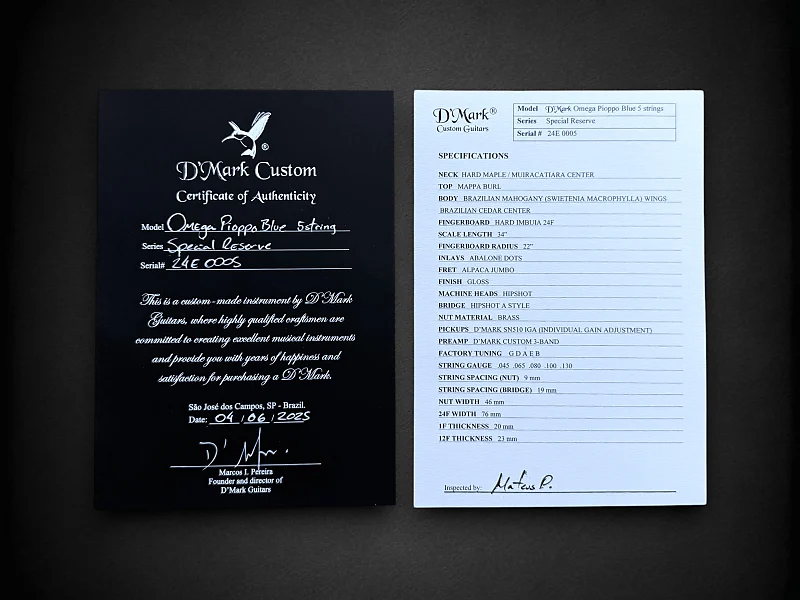 ®
D'Mark Custom
Certificate of Authenticity
Model Omega Pioppo Blue 5string
Series Special Reserve
Serial# 24E 0005
This is a custom-made instrument by D'Mark
Guitars, where highly qualified craftsmen are
committed to creating excellent musical instruments
and provide you with years of happiness and
satisfaction for purchasing a D'Mark.
São José dos Campos, SP - Brazil.
Date: 04 / 06 / 2025
D' M.
Marcos I. Pereira
Founder and director of
D'Mark Guitars
D'Mark®
Custom Guitars
Model D'Mark Omega Pioppo Blue 5 strings
Series Special Reserve
Serial # 24E 0005
SPECIFICATIONS
NECK HARD MAPLE / MUIRACATIARA CENTER
TOP MAPPA BURL
BODY BRAZILIAN MAHOGANY (SWIETENIA MACROPHYLLA) WINGS
BRAZILIAN CEDAR CENTER
FINGERBOARD HARD IMBUIA 24F
SCALE LENGTH 34"
FINGERBOARD RADIUS 22"
INLAYS ABALONE DOTS
FRET ALPACA JUMBO
FINISH GLOSS
MACHINE HEADS HIPSHOT
BRIDGE HIPSHOT A STYLE
NUT MATERIAL BRASS
PICKUPS D'MARK SN510 IGA (INDIVIDUAL GAIN ADJUSTMENT)
PREAMP D'MARK CUSTOM 3-BAND
FACTORY TUNING G D A E B
STRING GAUGE .045 .065 .080 .100 .130
STRING SPACING (NUT) 9 mm
STRING SPACING (BRIDGE) 19 mm
NUT WIDTH 46 mm
24F WIDTH 76 mm
1F THICKNESS 20 mm
12F THICKNESS 23 mm
Inspected by: Mateus P.